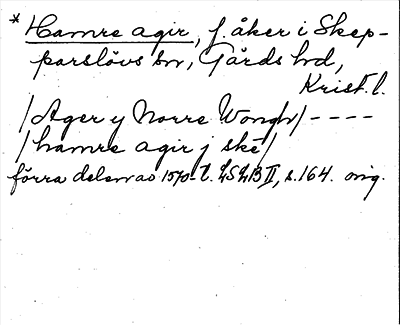 * Hamre agir, f. åker i Skep-
parslövs sn, Gärds hd,
Krist. l.
/Ager y Norre Wongh/ - - - -
/hamre agir j ske/
förra delen av 1570-t. LSLB II, s. 164. orig.